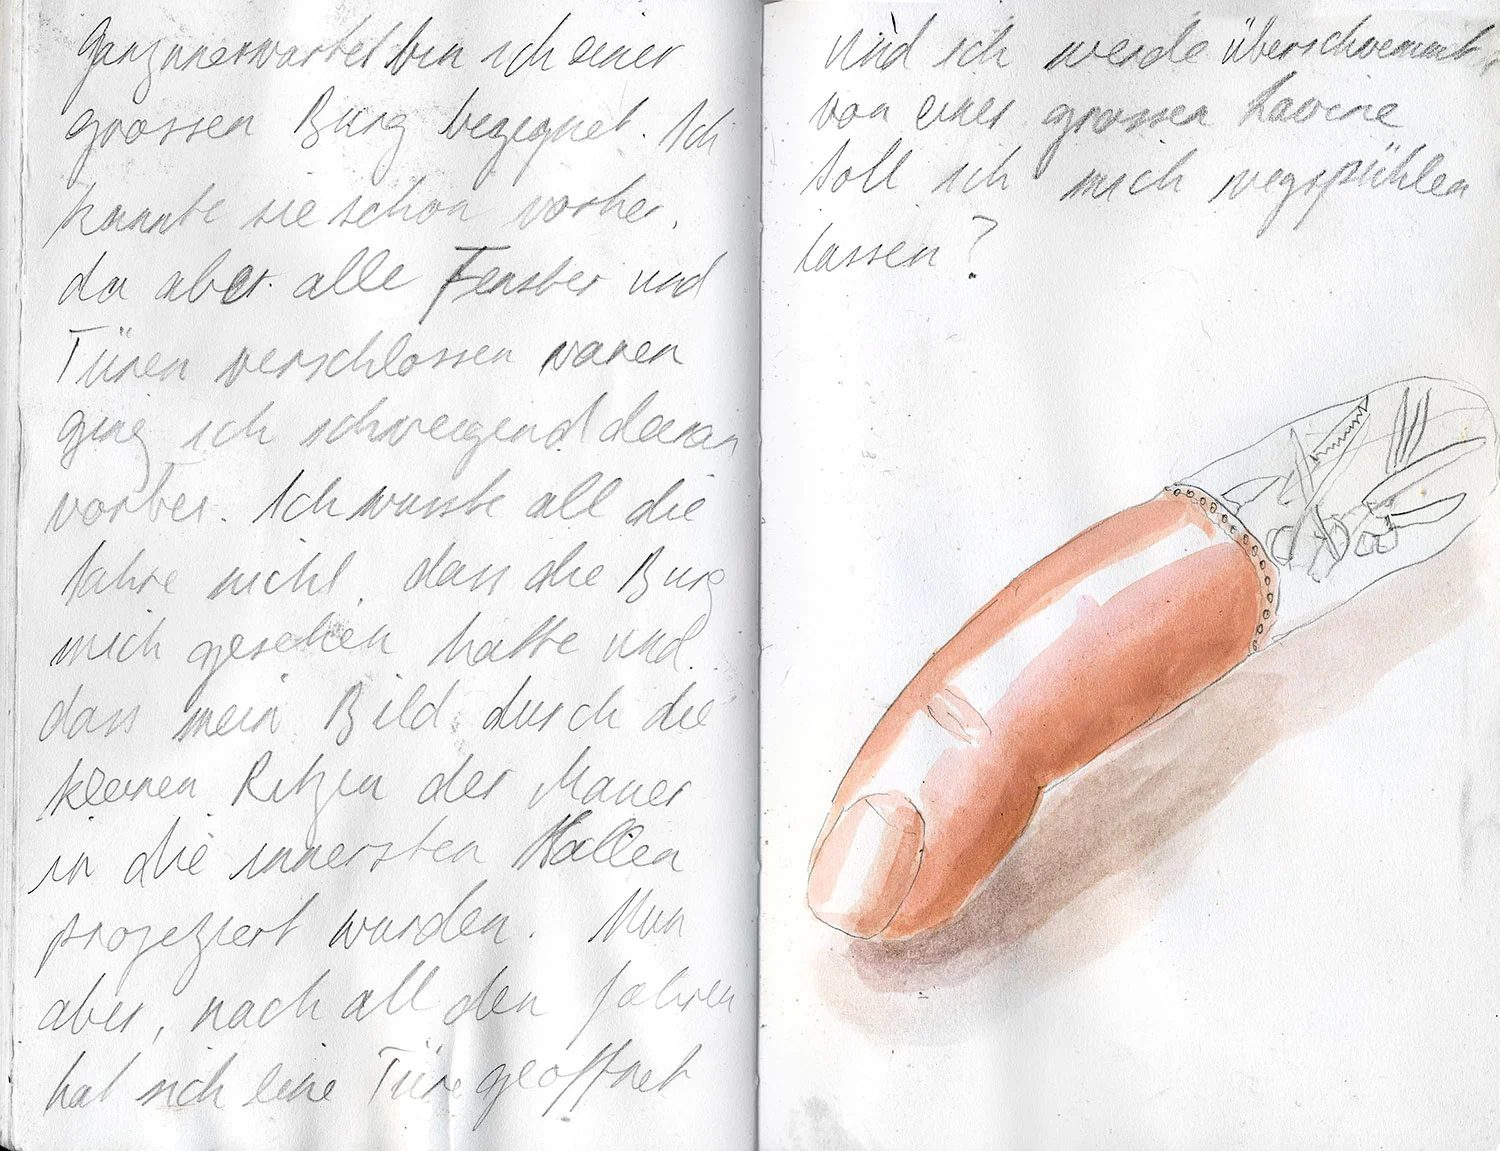 Ganz unerwartet bin ich einer
grossen Burg begegnet. Ich
kannte sie schon vorher,
da aber alle Fenster und
Türen verschlossen waren
ging ich schweigend daran
vorbei. Ich wusste all die
Jahre nicht, dass die Burg
mich gesehen hatte und
dass mein Bild durch die
kleinen Ritzen der Mauer
in die innersten Hallen
projeziert wurden. Nun
aber, nach all den Jahren
hat sich eine Türe geöffnet
und ich werde überschwemmt,
von einer grossen Lawine
soll ich mich wegspühlen
lassen?